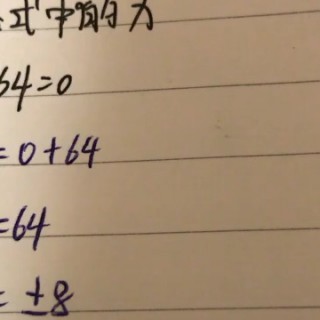 式中的x
64=0
=0+64
=64
=±8